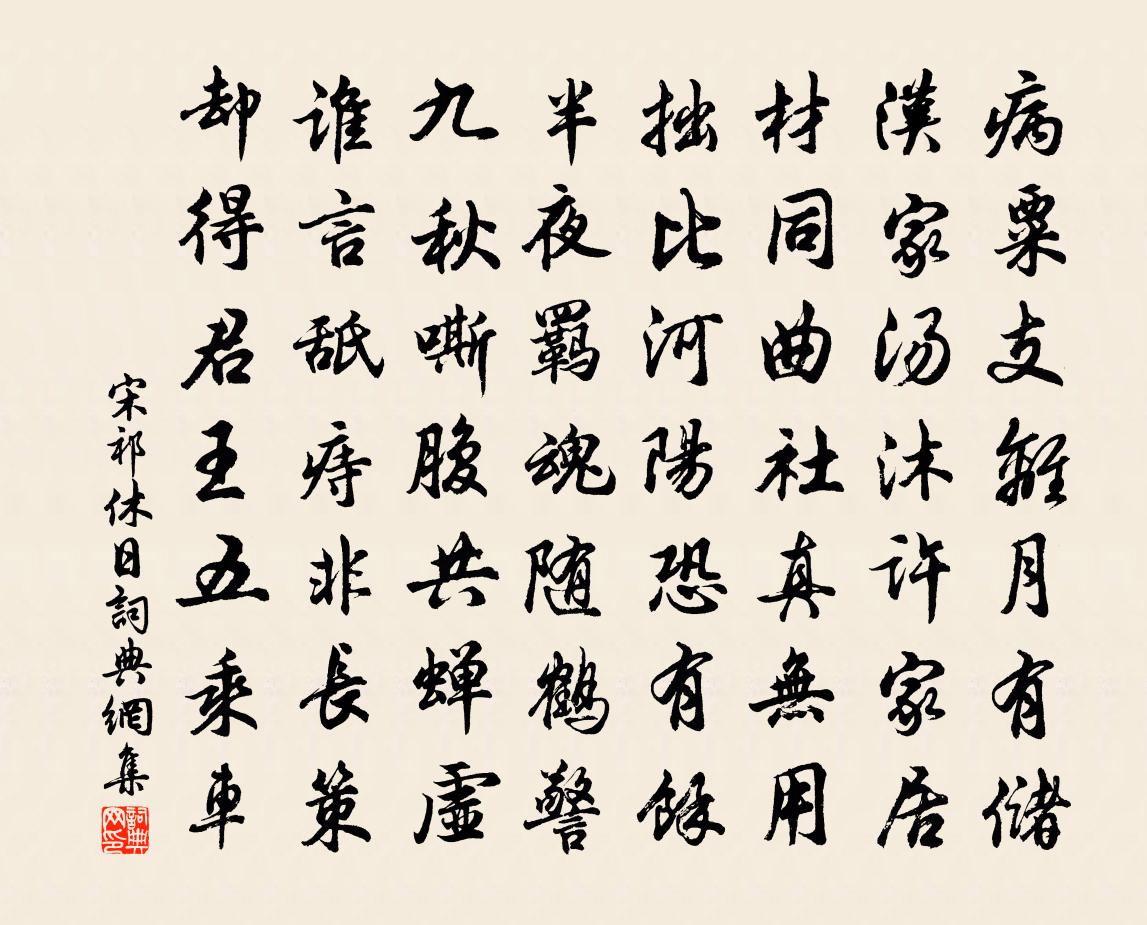 病粟支離月有儲
漢家湯沐許家居
材同曲社真無用
拙比河陽恐有餘
半夜羈魂随鶴警
九秋嘶腹共蝉虛
誰言舐痔非長策
却得君王五乘車
宋祁休日詞典網集
詞典网印